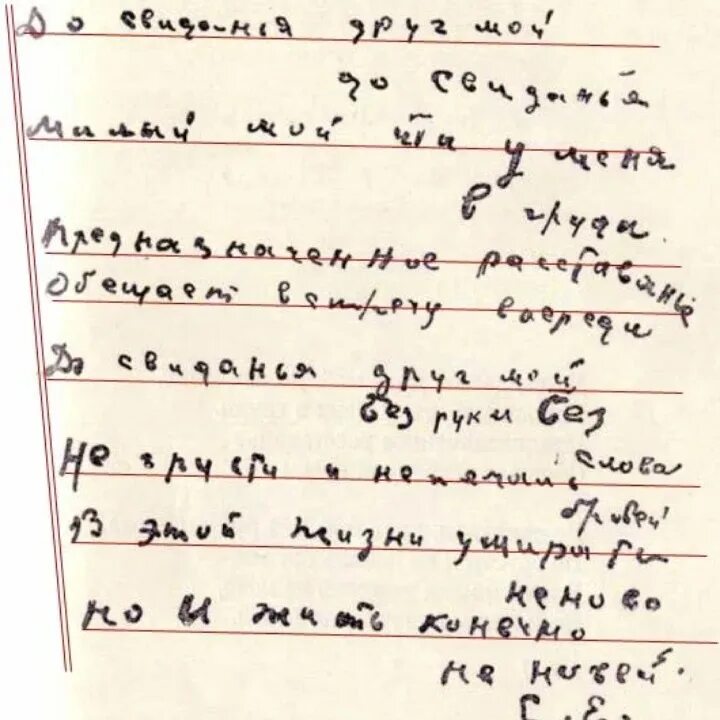 До свиданья друг мой
до свиданья
милый мой ты у меня
в груди.
Предназначенное расставанье
Обещает встречу впереди
До свиданья друг мой
без руки без
слова
Не грусти и не печаль
бровей
В этой жизни умирать
не ново
но и жить конечно
не новей.